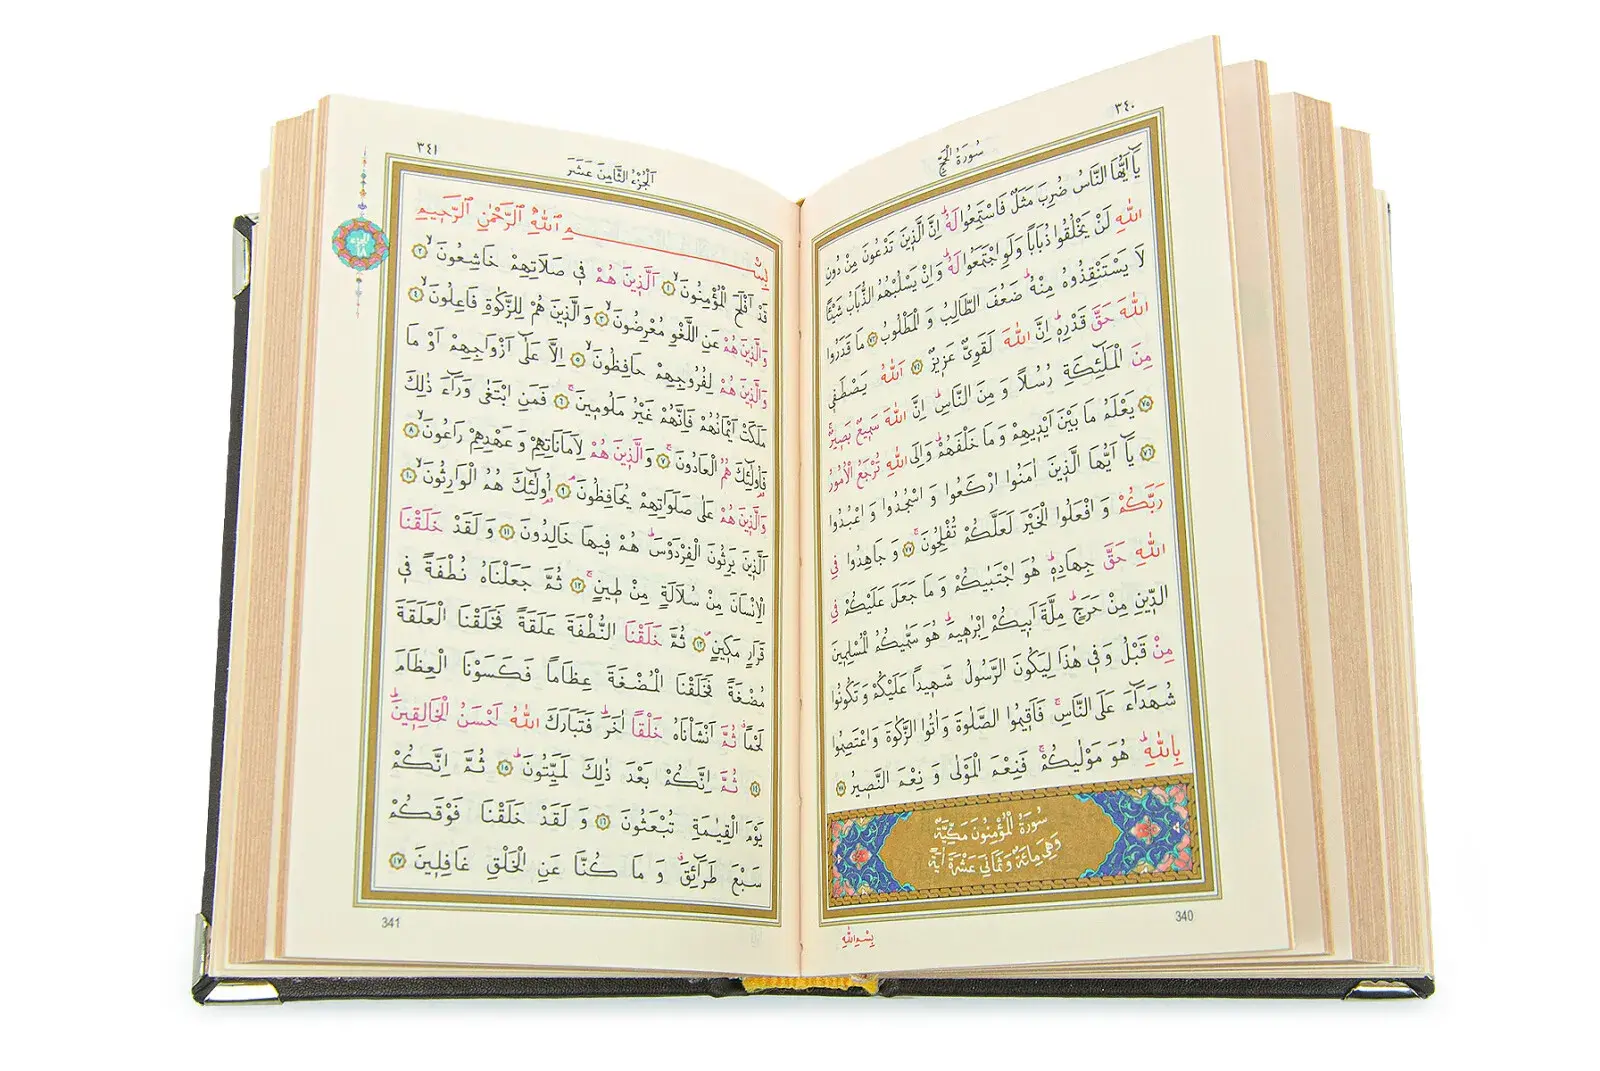 ٣٤٠
سُورَةُ الْحَجِّ
يَٓا اَيُّهَا النَّاسُ ضُرِبَ مَثَلٌ فَاسْتَمِعُوا لَهُۜ اِنَّ الَّذ۪ينَ تَدْعُونَ مِنْ دُونِ
اللّٰهِ لَنْ يَخْلُقُوا ذُبَاباً وَلَوِ اجْتَمَعُوا لَهُۜ وَاِنْ يَسْلُبْهُمُ الذُّبَابُ شَيْـٔاً
لَا يَسْتَنْقِذُوهُ مِنْهُۜ ضَعُفَ الطَّالِبُ وَالْمَطْلُوبُ ٧٣ مَا قَدَرُوا
اللّٰهَ حَقَّ قَدْرِه۪ۜ اِنَّ اللّٰهَ لَقَوِيٌّ عَز۪يزٌ ٧٤ اَللّٰهُ يَصْطَف۪ي
مِنَ الْمَلٰٓئِكَةِ رُسُلاً وَمِنَ النَّاسِۜ اِنَّ اللّٰهَ سَم۪يعٌ بَص۪يرٌۚ
٧٥ يَعْلَمُ مَا بَيْنَ اَيْد۪يهِمْ وَمَا خَلْفَهُمْۜ وَاِلَى اللّٰهِ تُرْجَعُ الْاُمُورُ
٧٦ يَٓا اَيُّهَا الَّذ۪ينَ اٰمَنُوا ارْكَعُوا وَاسْجُدُوا وَاعْبُدُوا
رَبَّكُمْ وَافْعَلُوا الْخَيْرَ لَعَلَّكُمْ تُفْلِحُونَۚ ٧٧ وَجَاهِدُوا فِي
اللّٰهِ حَقَّ جِهَادِه۪ۜ هُوَ اجْتَبٰيكُمْ وَمَا جَعَلَ عَلَيْكُمْ فِي
الدّ۪ينِ مِنْ حَرَجٍۜ مِلَّةَ اَب۪يكُمْ اِبْرٰه۪يمَۜ هُوَ سَمّٰيكُمُ الْمُسْلِم۪ينَ
مِنْ قَبْلُ وَف۪ي هٰذَا لِيَكُونَ الرَّسُولُ شَه۪يداً عَلَيْكُمْ وَتَكُونُوا
شُهَدَٓاءَ عَلَى النَّاسِۚ فَاَق۪يمُوا الصَّلٰوةَ وَاٰتُوا الزَّكٰوةَ وَاعْتَصِمُوا
بِاللّٰهِۜ هُوَ مَوْلٰيكُمْۚ فَنِعْمَ الْمَوْلٰى وَنِعْمَ النَّص۪يرُ ٧٨
سُورَةُ الْمُؤْمِنُونَ مَكِّيَّةٌ
وَهِيَ مِائَةٌ وَثَمَانِي عَشْرَةَ اٰيَةً
340
بِسْمِ اللّٰهِ
٣٤١
اَلْجُزْءُ الثَّامِنَ عَشَرَ
بِسْمِ اللّٰهِ الرَّحْمٰنِ الرَّح۪يمِ
قَدْ اَفْلَحَ الْمُؤْمِنُونَۙ ١ اَلَّذ۪ينَ هُمْ ف۪ي صَلَاتِهِمْ خَاشِعُونَۙ ٢
وَالَّذ۪ينَ هُمْ عَنِ اللَّغْوِ مُعْرِضُونَۙ ٣ وَالَّذ۪ينَ هُمْ لِلزَّكٰوةِ فَاعِلُونَۙ ٤
وَالَّذ۪ينَ هُمْ لِفُرُوجِهِمْ حَافِظُونَۙ ٥ اِلَّا عَلٰٓى اَزْوَاجِهِمْ اَوْ مَا
مَلَكَتْ اَيْمَانُهُمْ فَاِنَّهُمْ غَيْرُ مَلُوم۪ينَۚ ٦ فَمَنِ ابْتَغٰى وَرَٓاءَ ذٰلِكَ
فَاُو۬لٰٓئِكَ هُمُ الْعَادُونَۚ ٧ وَالَّذ۪ينَ هُمْ لِاَمَانَاتِهِمْ وَعَهْدِهِمْ رَاعُونَۙ ٨
وَالَّذ۪ينَ هُمْ عَلٰى صَلَوَاتِهِمْ يُحَافِظُونَۢ ٩ اُو۬لٰٓئِكَ هُمُ الْوَارِثُونَۙ ١٠
اَلَّذ۪ينَ يَرِثُونَ الْفِرْدَوْسَۜ هُمْ ف۪يهَا خَالِدُونَ ١١ وَلَقَدْ خَلَقْنَا
الْاِنْسَانَ مِنْ سُلَالَةٍ مِنْ ط۪ينٍۚ ١٢ ثُمَّ جَعَلْنَاهُ نُطْفَةً ف۪ي
قَرَارٍ مَك۪ينٍۖ ١٣ ثُمَّ خَلَقْنَا النُّطْفَةَ عَلَقَةً فَخَلَقْنَا الْعَلَقَةَ
مُضْغَةً فَخَلَقْنَا الْمُضْغَةَ عِظَاماً فَكَسَوْنَا الْعِظَامَ
لَحْماًۗ ثُمَّ اَنْشَأْنَاهُ خَلْقاً اٰخَرَۜ فَتَبَارَكَ اللّٰهُ اَحْسَنُ الْخَالِق۪ينَۜ
١٤ ثُمَّ اِنَّكُمْ بَعْدَ ذٰلِكَ لَمَيِّتُونَۜ ١٥ ثُمَّ اِنَّكُمْ
يَوْمَ الْقِيٰمَةِ تُبْعَثُونَ ١٦ وَلَقَدْ خَلَقْنَا فَوْقَكُمْ
سَبْعَ طَرَٓائِقَۗ وَمَا كُنَّا عَنِ الْخَلْقِ غَافِل۪ينَ ١٧
341